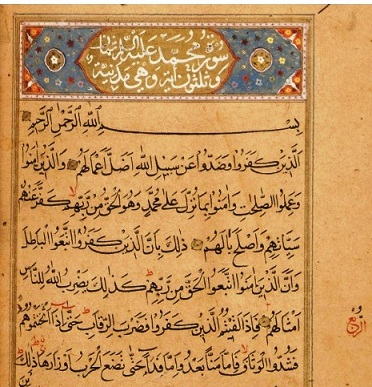 سورة محمد عليه السلم ثمان
وثلثون اية وهي مدنية
بِسْمِ اللَّهِ الرَّحْمٰنِ الرَّحِيمِ
الَّذِينَ كَفَرُوا وَصَدُّوا عَنْ سَبِيلِ اللَّهِ أَضَلَّ أَعْمَالَهُمْ وَالَّذِينَ اٰمَنُوا
وَعَمِلُوا الصّٰلِحٰتِ وَاٰمَنُوا بِمَا نُزِّلَ عَلٰى مُحَمَّدٍ وَهُوَ الْحَقُّ مِنْ رَبِّهِمْ كَفَّرَ عَنْهُمْ
سَيِّئَاتِهِمْ وَأَصْلَحَ بَالَهُمْ ذٰلِكَ بِأَنَّ الَّذِينَ كَفَرُوا اتَّبَعُوا الْبَاطِلَ
وَأَنَّ الَّذِينَ اٰمَنُوا اتَّبَعُوا الْحَقَّ مِنْ رَبِّهِمْ كَذٰلِكَ يَضْرِبُ اللَّهُ لِلنَّاسِ
أَمْثَالَهُمْ فَإِذَا لَقِيتُمُ الَّذِينَ كَفَرُوا فَضَرْبَ الرِّقَابِ حَتّٰى إِذَا أَثْخَنْتُمُوهُمْ
فَشُدُّوا الْوَثَاقَ فَإِمَّا مَنًّا بَعْدُ وَإِمَّا فِدَاءً حَتّٰى تَضَعَ الْحَرْبُ أَوْزَارَهَا ذٰلِكَ